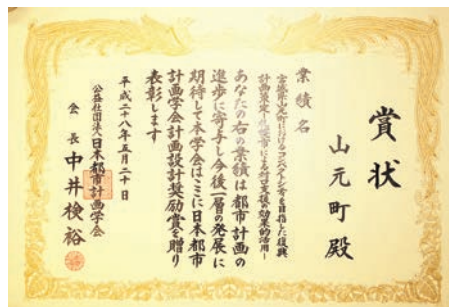 賞状
山元町殿
業績名
宮城県山元町におけるコンパクトシティを目指した復興
あなたの右の業績は都市計画の
進歩に寄与し今後一層の発展に
期待して本学会はここに日本都市
計画学会計画設計奨励賞を贈り
表彰します
平成二十八年五月二十日
公益社団法人日本都市計画学会
会長中井検裕